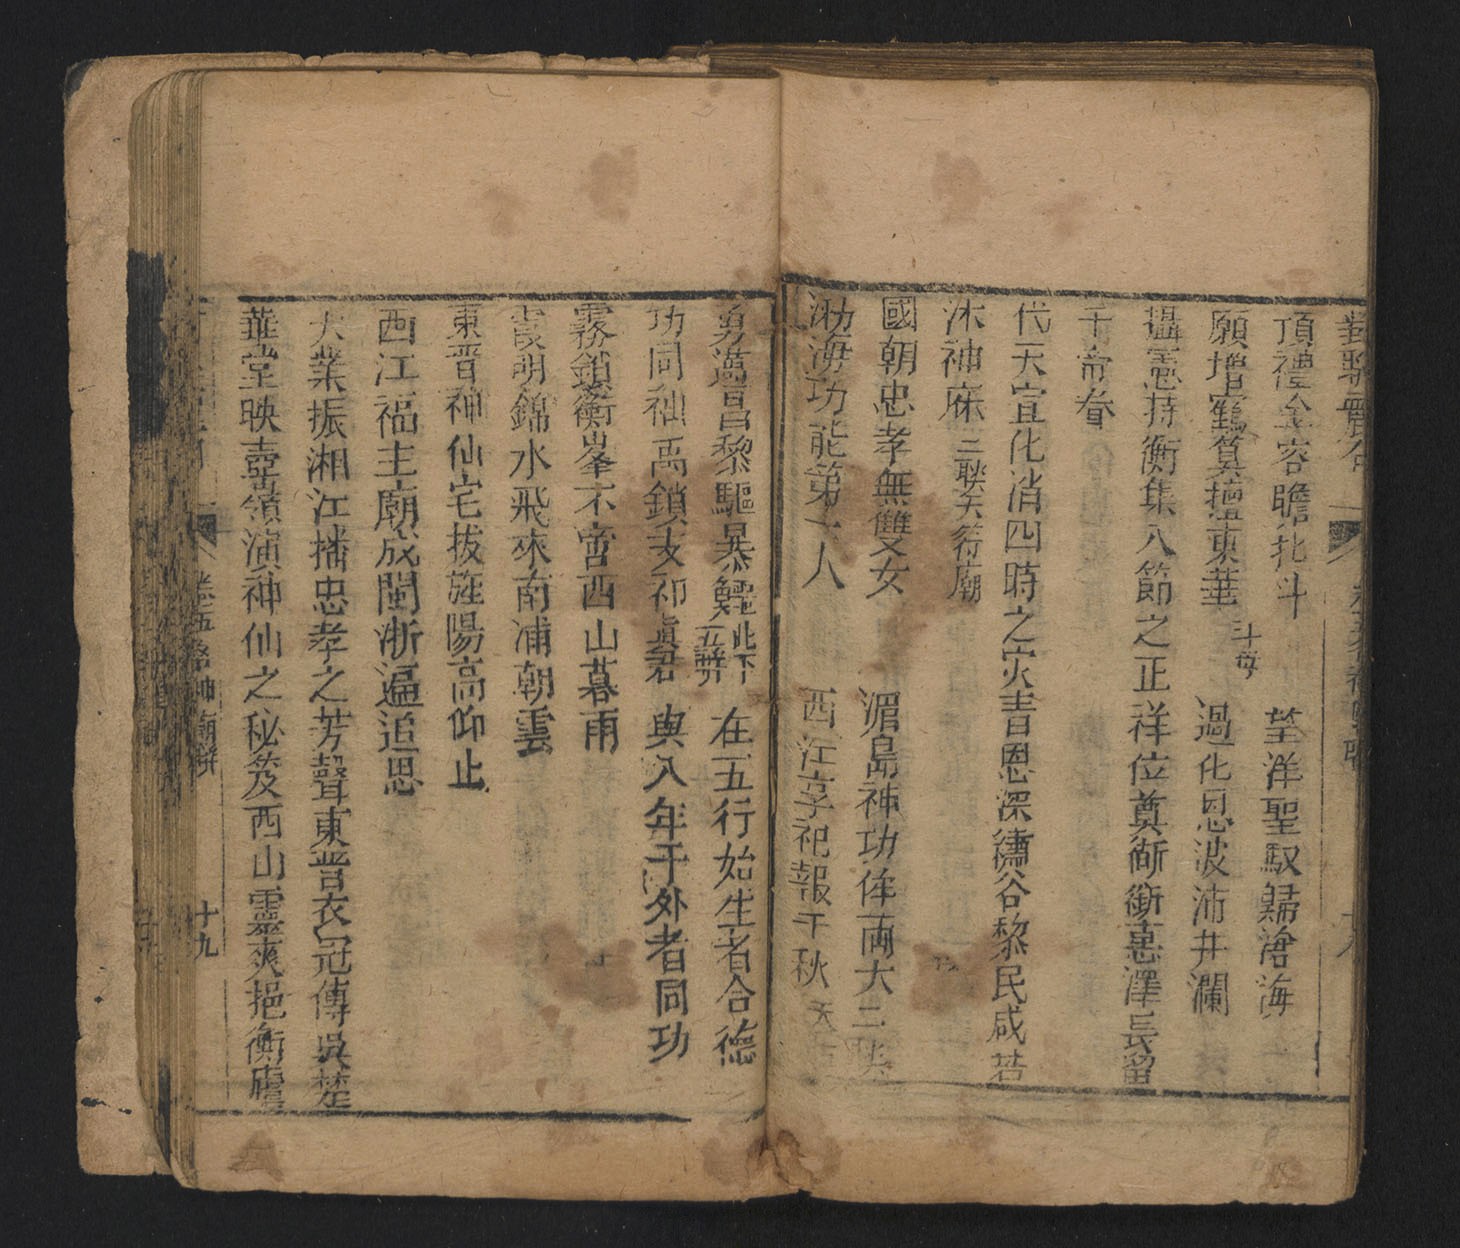 頂禮金容瞻北斗　望洋聖馭歸滄海
願增寉筭擅東華 斗母　過化恩波沛井瀾
攝憲持衡集八節之正祥位奠銜惠澤長留
于帝眷
代天宣化消四時之灾眚恩深繡谷黎民咸若
沐神庥 三聯天符廟
國朝忠孝無雙女　湄島神功侔兩大
渤海功能第一人　西江享祀報千秋
勇邁昌黎驅暴鱷 此下五聯　在五行始生者合德
功同神禹鎖支祁 眞君　與八年于外者同功
霧鎖衡峯不啻西山暮雨
霞明錦水飛來南浦朝雲
東晋神仙宅拔旌陽高仰止
西江福主廟成閩浙遍追思
大業振湘江播忠孝之芳聲東晋衣冠傳吳楚
華堂映壺嶺演神仙之秘笈西山靈爽挹衡廬
卷五 各神廟聯
十九